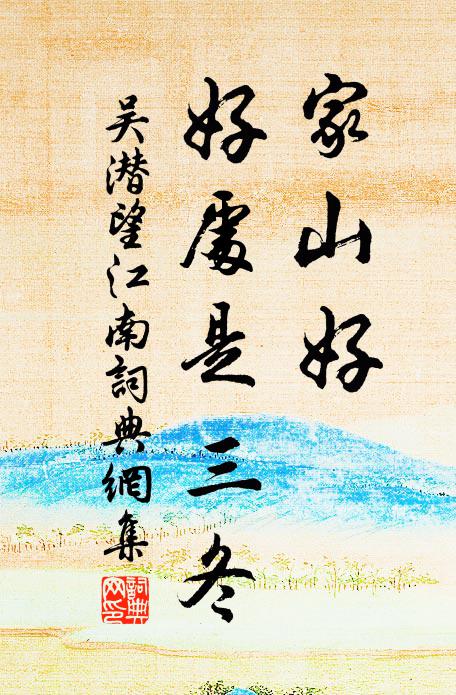 家山好
好處是三冬
吴潜望江南詞典網集
詞典